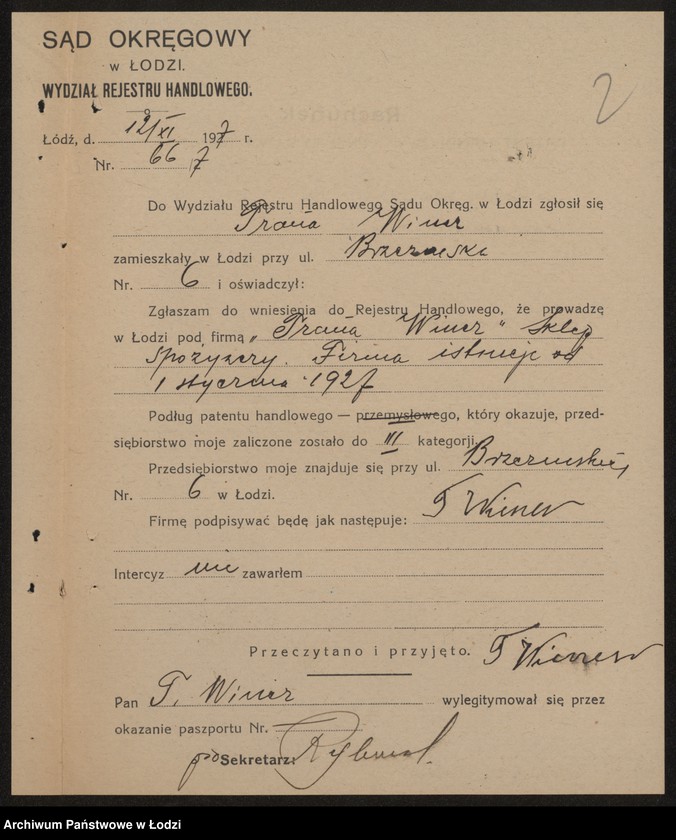 SĄD OKRĘGOWY
w ŁODZI.
WYDZIAŁ REJESTRU HANDLOWEGO.
2
Łódź, d. 12/XI 1927 r.
Nr. 667
Do Wydziału Rejestru Handlowego Sądu Okręg. w Łodzi zgłosił się
Winer
zamieszkały w Łodzi przy ul. Brzezińska
Nr. 6 i oświadczył:
Zgłaszam do wniesienia do Rejestru Handlowego, że prowadzę
w Łodzi pod firmą „ Winer" Sklep
spożywczy. Firma istnieje od
1 stycznia 1927
Podług patentu handlowego — przemysłowego, który okazuje, przed-
siębiorstwo moje zaliczone zostało do III kategorji.
Przedsiębiorstwo moje znajduje się przy ul. Brzezińskiej
Nr. 6 w Łodzi.
Firmę podpisywać będę jak następuje: T Winer
Intercyz nie zawarłem
Przeczytano i przyjęto. T Winer
Pan T. Winer wylegitymował się przez
okazanie paszportu Nr.
Sekretarz:
Archiwum Państwowe w Łodzi